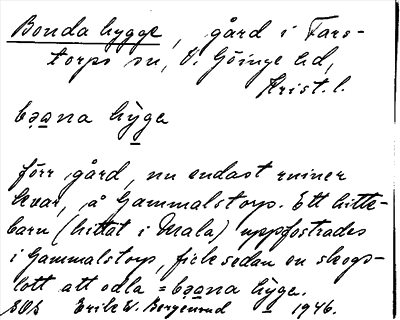 Bonda hygge, gård i Fars-
torps sn, V. Göinge hd,
Krist. l.
bɔana hỳga
förr gård, nu endast ruiner
kvar, å Gammalstorp. Ett hitte-
barn (hittat i Mala) uppfostrades
i Gammalstorp, fick sedan en skogs-
lott att odla = bɔana hygge.
SOS Erik W. Bergenrud 1946.